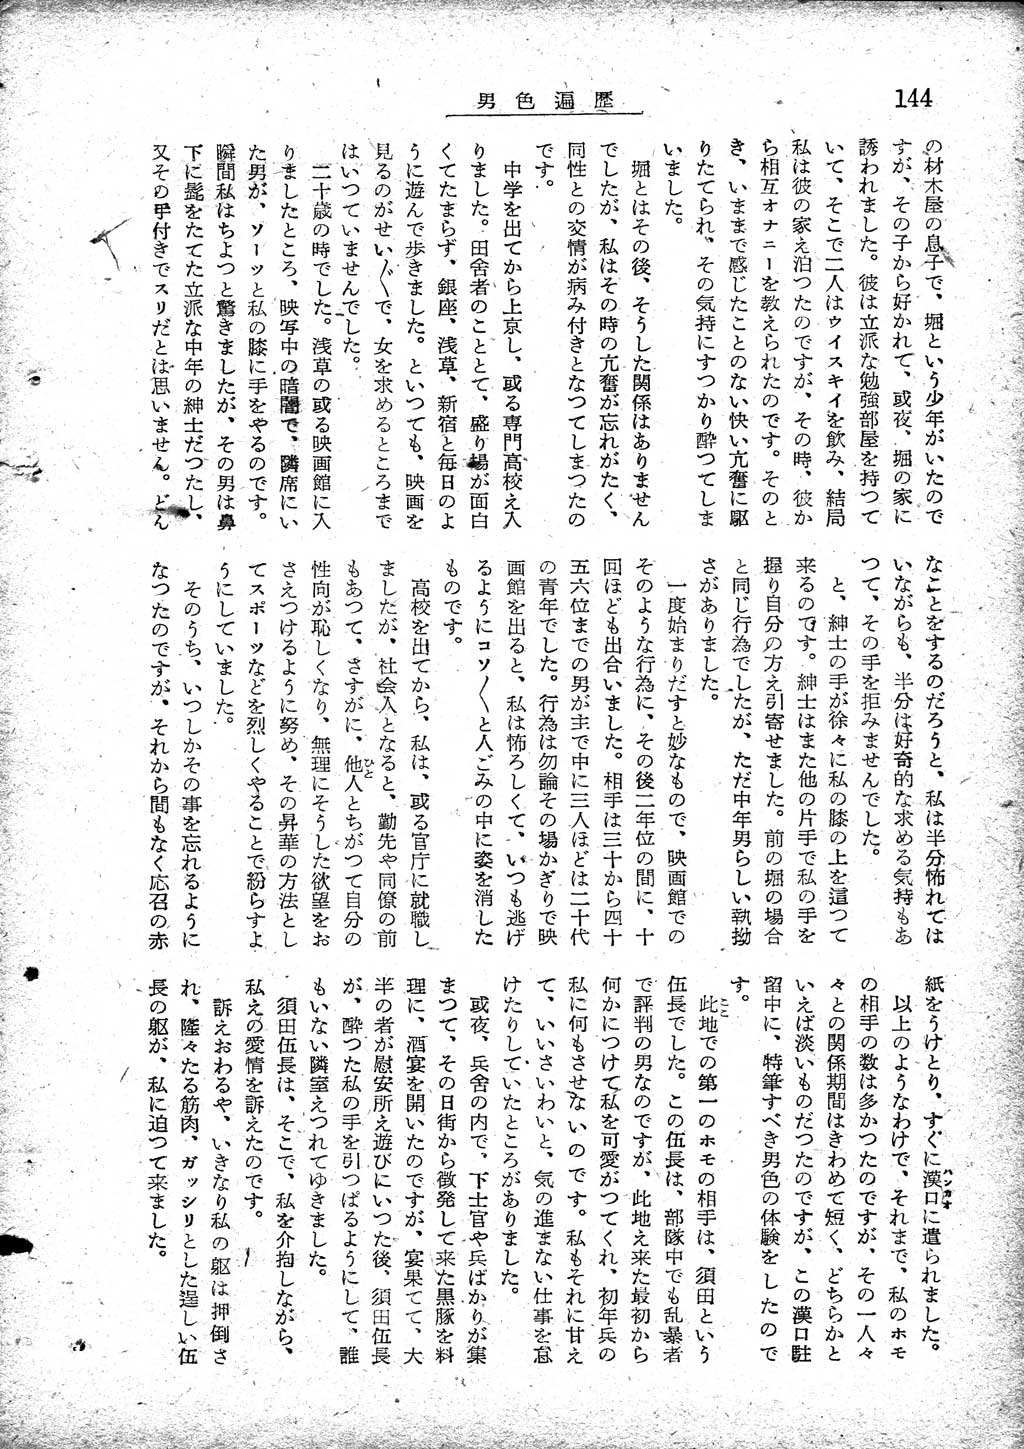 144
男色遍歴
の材木屋の息子で、堀という少年がいたので
すが、その子から好かれて、或夜、堀の家に
誘われました。彼は立派な勉強部屋を持つて
いて、そこで二人はウイスキイを飲み、結局
私は彼の家え泊つたのですが、その時、彼か
ら相互オナニーを教えられたのです。そのと
き、いままで感じたことのない快い亢奮に駆
りたてられ、その気持にすつかり酔つてしま
いました。
堀とはその後、そうした関係はありません
でしたが、私はその時の亢奮が忘れがたく、
同性との交情が病み付きとなつてしまつたの
です。
中学を出てから上京し、或る専門高校え入
りました。田舎者のこととて、盛り場が面白
くてたまらず、銀座、浅草、新宿と毎日のよ
うに遊んで歩きました。といつても、映画を
見るのがせい〲で、女を求めるところまで
はいつていませんでした。
二十歳の時でした。浅草の或る映画館に入
りましたところ、映写中の暗闇で、隣席にい
た男が、ソーッと私の膝に手をやるのです。
瞬間私はちよつと驚きましたが、その男は鼻
下に髭をたてた立派な中年の紳士だつたし、
又その手付きでスリだとは思いません。どん
なことをするのだろうと、私は半分怖れては
いながらも、半分は好奇的な求める気持もあ
つて、その手を拒みませんでした。
と、紳士の手が徐々に私の膝の上を這つて
来るのです。紳士はまた他の片手で私の手を
握り自分の方え引寄せました。前の堀の場合
と同じ行為でしたが、ただ中年男らしい執拗
さがありました。
一度始まりだすと妙なもので、映画館での
そのような行為に、その後二年位の間に、十
回ほども出合いました。相手は三十から四十
五六位までの男が主で中に三人ほどは二十代
の青年でした。行為は勿論その場かぎりで映
画館を出ると、私は怖ろしくて、いつも逃げ
るようにコソ〱と人ごみの中に姿を消した
ものです。
高校を出てから、私は、或る官庁に就職し
ましたが、社会人となると、勤先や同僚の前
もあつて、さすがに、他人とちがつて自分の
性向が恥しくなり、無理にそうした欲望をお
さえつけるように努め、その昇華の方法とし
てスポーツなどを烈しくやることで紛らすよ
うにしていました。
そのうち、いつしかその事を忘れるように
なつたのですが、それから間もなく応召の赤
紙をうけとり、すぐに漢口に遣られました。
以上のようなわけで、それまで、私のホモ
の相手の数は多かつたのですが、その一人々
々との関係期間はきわめて短く、どちらかと
いえば淡いものだつたのですが、この漢口駐
留中に、特筆すべき男色の体験をしたので
す。
此地での第一のホモの相手は、須田という
伍長でした。この伍長は、部隊中でも乱暴者
で評判の男なのですが、此地え来た最初から
何かにつけて私を可愛がつてくれ、初年兵の
私に何もさせないのです。私もそれに甘え
て、いいさいわいと、気の進まない仕事を怠
けたりしていたところがありました。
或夜、兵舎の内で、下士官や兵ばかりが集
まつて、その日街から徴発して来た黒豚を料
理に、酒宴を開いたのですが、宴果てて、大
半の者が慰安所え遊びにいつた後、須田伍長
が、酔つた私の手を引つぱるようにして、誰
もいない隣室えつれてゆきました。
須田伍長は、そこで、私を介抱しながら、
私えの愛情を訴えたのです。
訴えおわるや、いきなり私の躯は押倒さ
れ、隆々たる筋肉、ガッシリとした逞しい伍
長の躯が、私に迫つて来ました。